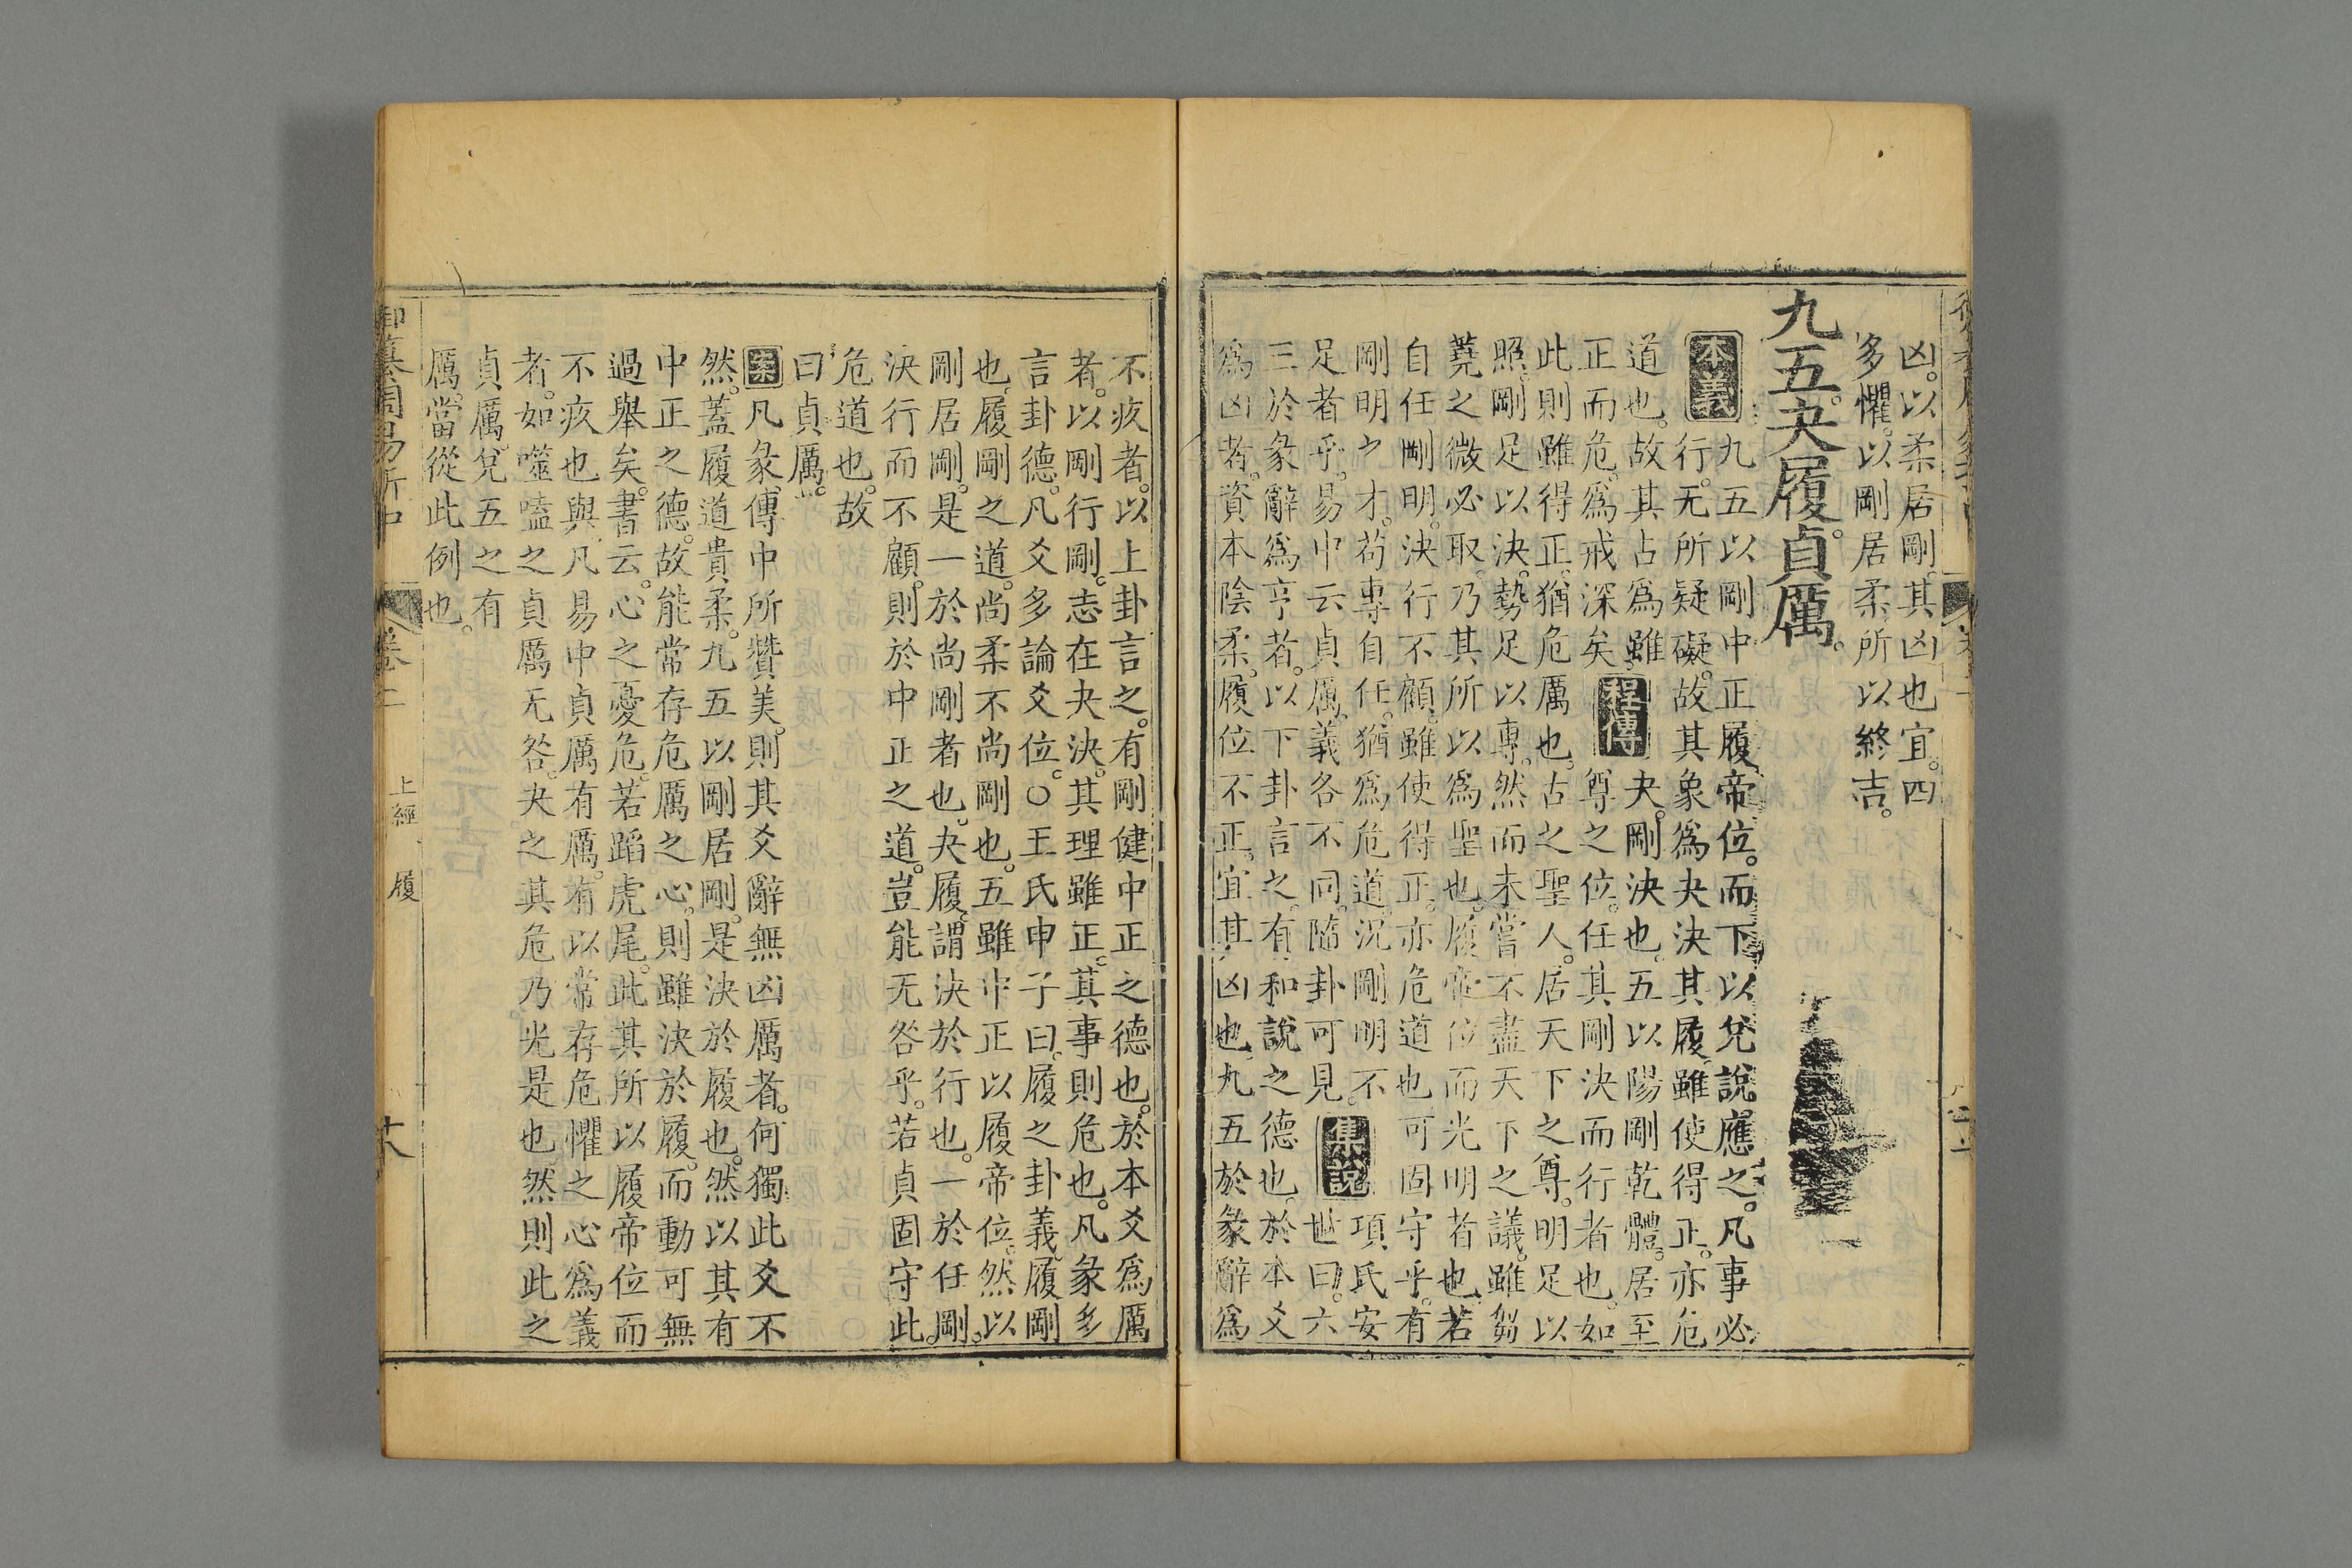 凶。以柔居剛。其凶也宜。四
多懼。以剛居柔。所以終吉。
九五。夬履貞厲。
本義
九五以剛中正履帝位。而下以兌說應之。凡事必
行。无所疑礙。故其象爲夬決其履。雖使得正。亦危
道也。故其占爲雖
正而危。爲戒深矣。
程傳
夬。剛決也。五以陽剛乾體。居至
尊之位。任其剛決而行者也。如
此則雖得正。猶危厲也。古之聖人。居天下之尊。明足以
照。剛足以決。勢足以專。然而未嘗不盡天下之議。雖芻
蕘之微必取。乃其所以爲聖也。履帝位而光明者也。若
自任剛明。決行不顧。雖使得正。亦危道也。可固守乎。有
剛明之才。苟專自任。猶爲危道。況剛明不
足者乎。易中云貞厲。義各不同。隨卦可見。
集說
項氏安
世曰。六
三於彖辭爲亨者。以下卦言之。有和說之德也。於本爻
爲凶者。資本陰柔。履位不正。宜其凶也。九五於彖辭爲
不疚者。以上卦言之。有剛健中正之德也。於本爻爲厲
者。以剛行剛。志在夬決。其理雖正。其事則危也。凡彖多
言卦德。凡爻多論爻位。○王氏申子曰。履之卦義。履剛
也。履剛之道。尚柔不尚剛也。五雖中正以履帝位。然以
剛居剛。是一於尚剛者也。夬履。謂決於行也。一於任剛。
決行而不顧。則於中正之道。豈能无咎乎。若貞固守此。
危道也。故
曰貞厲。
案
凡彖傳中所贊美。則其爻辭無凶厲者。何獨此爻不
然。蓋履道貴柔。九五以剛居剛。是決於履也。然以其有
中正之德。故能常存危厲之心。則雖決於履。而動可無
過舉矣。書云。心之憂危。若蹈虎尾。此其所以履帝位而
不疚也與。凡易中貞厲有厲。有以常存危懼之心爲義
者。如噬嗑之貞厲无咎。夬之其危乃光是也。然則此之
貞厲。兌五之有
厲。當從此例也。
御纂周易折中
卷二
上經
履